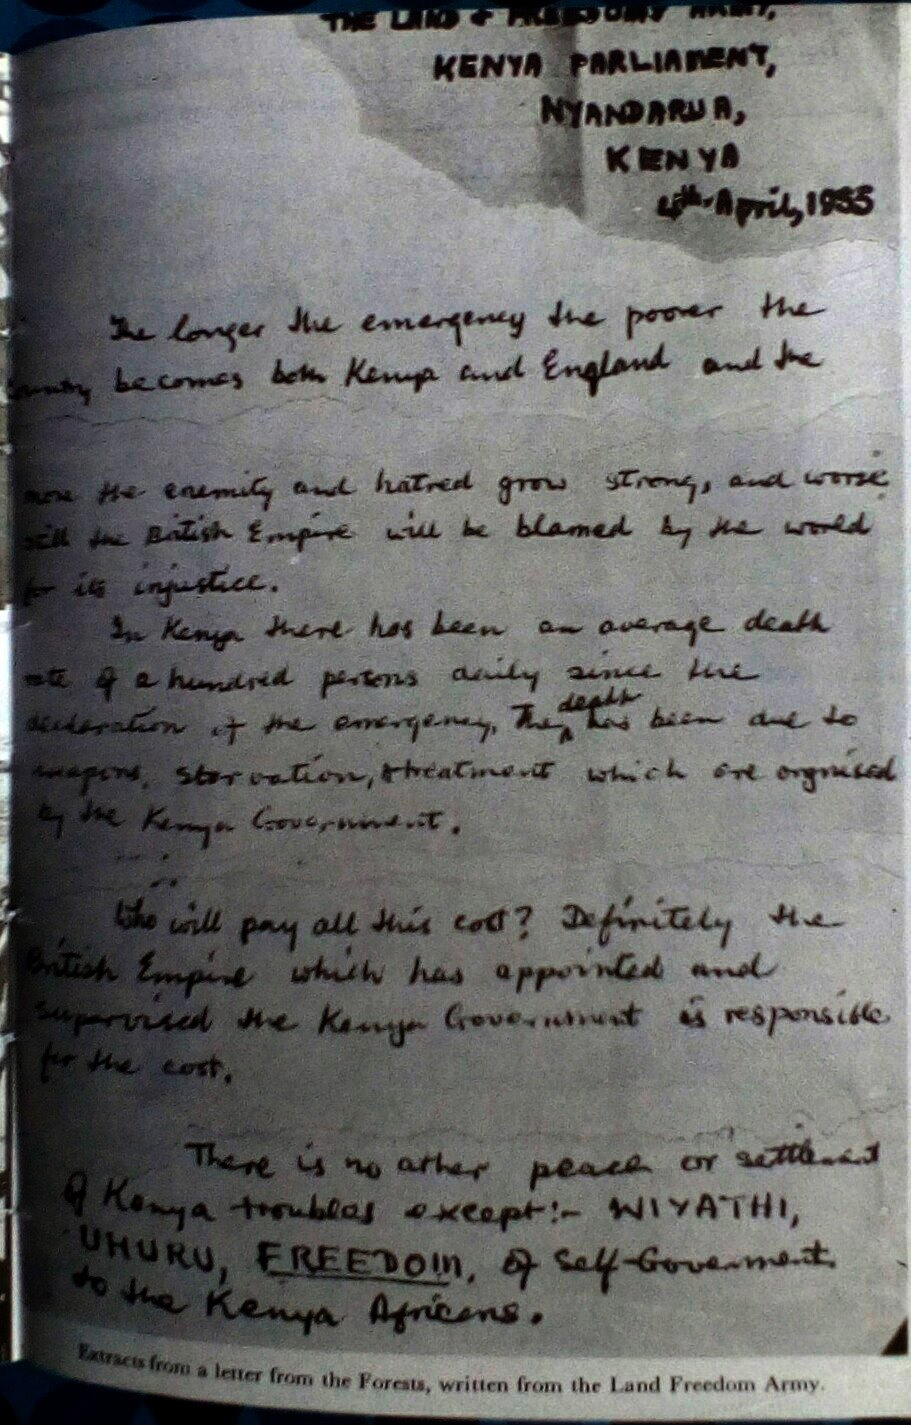 THE LAND & FREEDOM ARMY,
KENYA PARLIAMENT,
NYANDARUA,
KENYA
4th April, 1955
The longer the emergency the poorer the
country becomes both Kenya and England and the
more the enemity and hatred grow strong, and worse
still the British Empire will be blamed by the world
for its injustice.
In Kenya there has been an average death
rate of a hundred persons daily since the
decleration of the emergency, They death has been due to
weapons, starvation, & treatment which are orgnised
by the Kenya Government.
Who will pay all this cost? Definitely the
British Empire which has appointed and
supervised the Kenya Government is responsible
for the cost.
There is no other peace or settlement
of Kenya troubles except:- WIYATHI,
UHURU, FREEDOM, of Self-Government
to the Kenya Africans.
Extracts from a letter from the Forests, written from the Land Freedom Army.